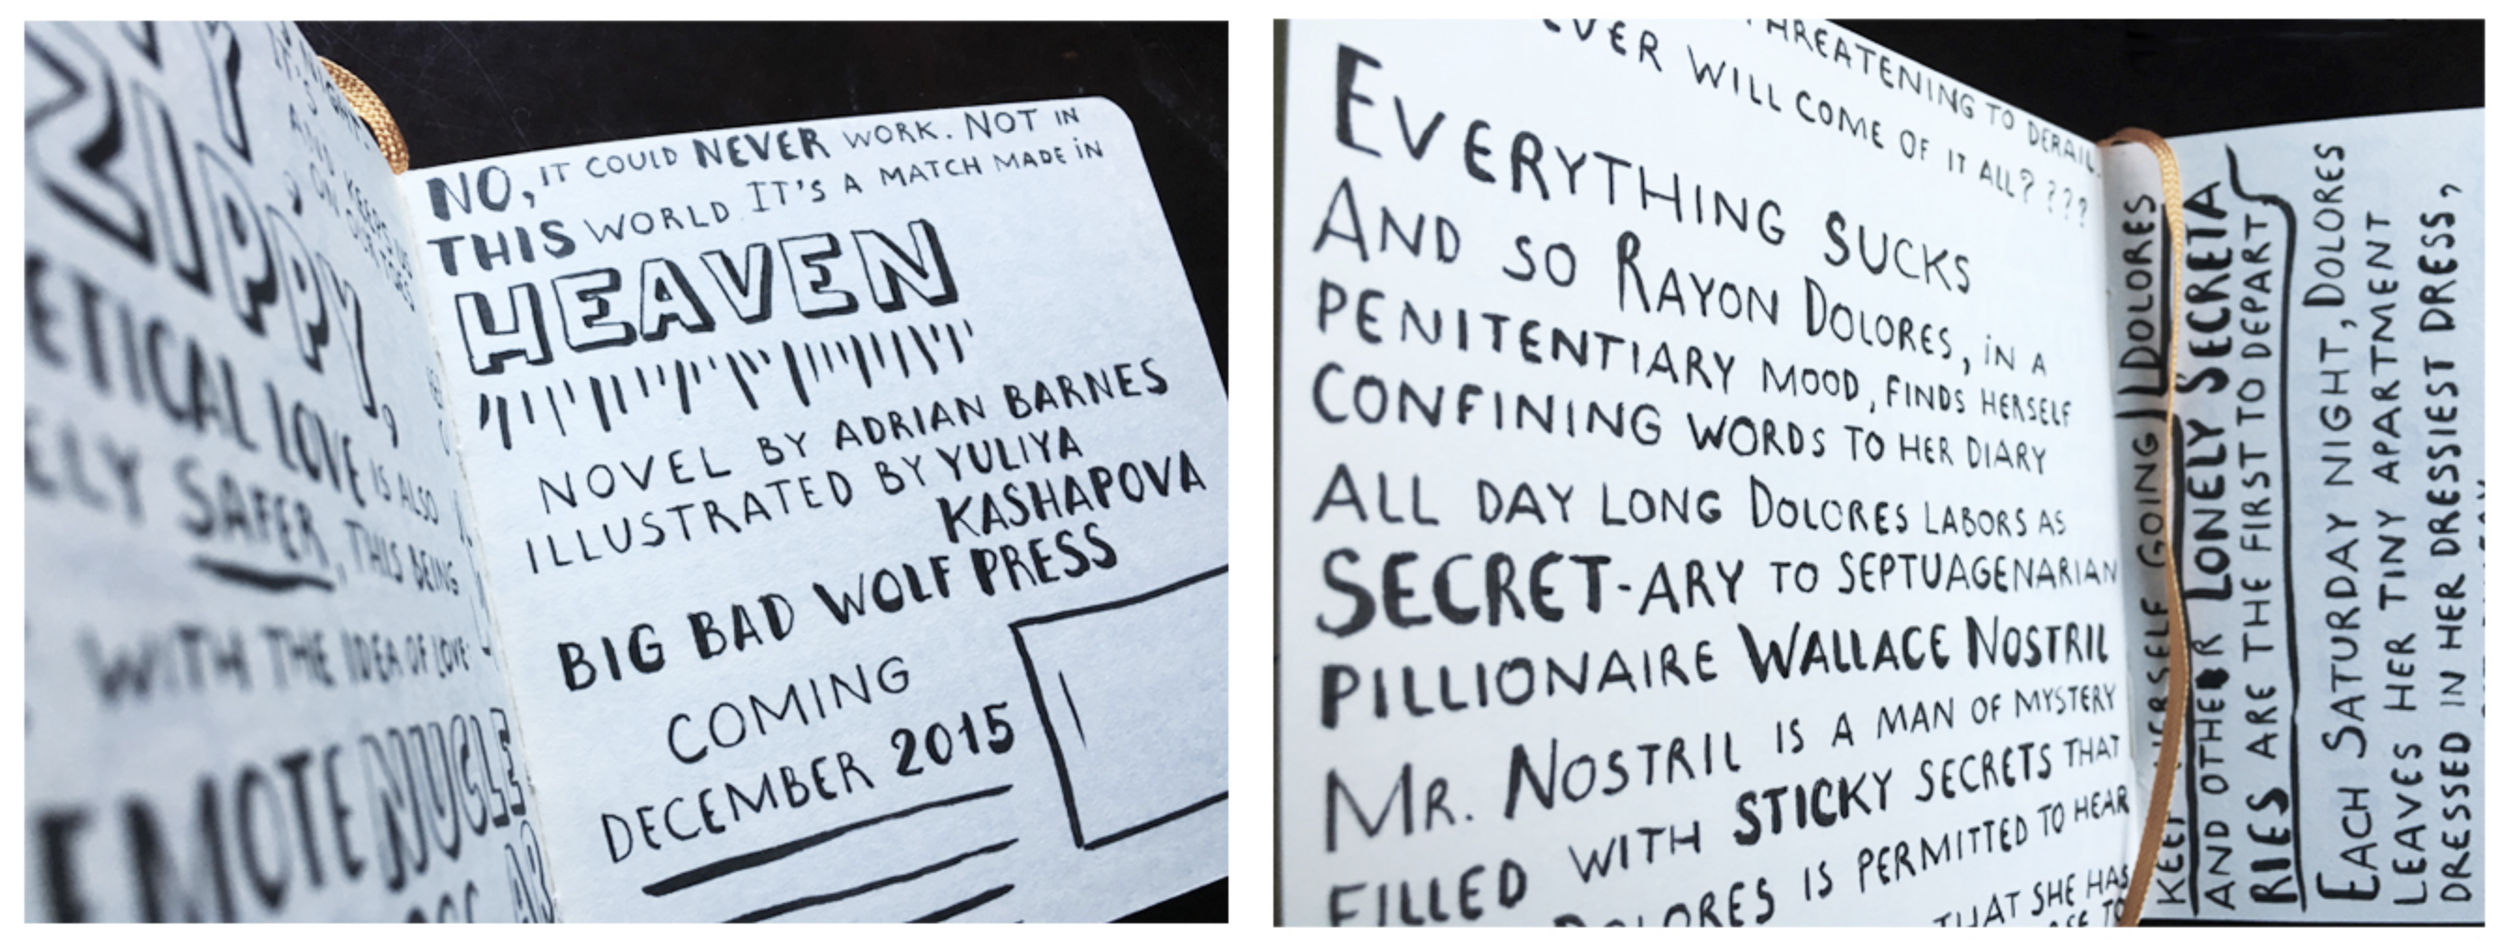 PPY,
ETICAL LOVE IS ALSO
ELY SAFER, THIS BEING
WITH THE IDEA OF LOVE
EMOTE NUCLE
NO, IT COULD NEVER WORK. NOT IN
THIS WORLD. IT'S A MATCH MADE IN
HEAVEN
NOVEL BY ADRIAN BARNES
ILLUSTRATED BY YULIYA
KASHAPOVA
BIG BAD WOLF PRESS
COMING
DECEMBER 2015
THREATENING TO DERAIL
EVER WILL COME OF IT ALL? ???
EVERYTHING SUCKS
AND SO RAYON DOLORES, IN A
PENITENTIARY MOOD, FINDS HERSELF
CONFINING WORDS TO HER DIARY
ALL DAY LONG DOLORES LABORS AS
SECRET-ARY TO SEPTUAGENARIAN
PILLIONAIRE WALLACE NOSTRIL
MR. NOSTRIL IS A MAN OF MYSTERY
FILLED WITH STICKY SECRETS THAT
DOLORES IS PERMITTED TO HEAR
THAT SHE HAS
KEEP HERSELF GOING DOLORES
AND OTHER LONELY SECRETA
RIES ARE THE FIRST TO DEPART
EACH SATURDAY NIGHT, DOLORES
LEAVES HER TINY APARTMENT
DRESSED IN HER DRESSIEST DRESS,